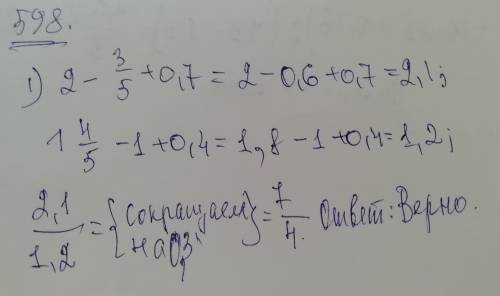 598.
1) 2 - 3/5 + 0,7 = 2 - 0,6 + 0,7 = 2,1;
1 4/5 - 1 + 0,4 = 1,8 - 1 + 0,4 = 1,2;
2,1/1,2 = {сокращаем на 0,3} = 7/4. Ответ: Верно.